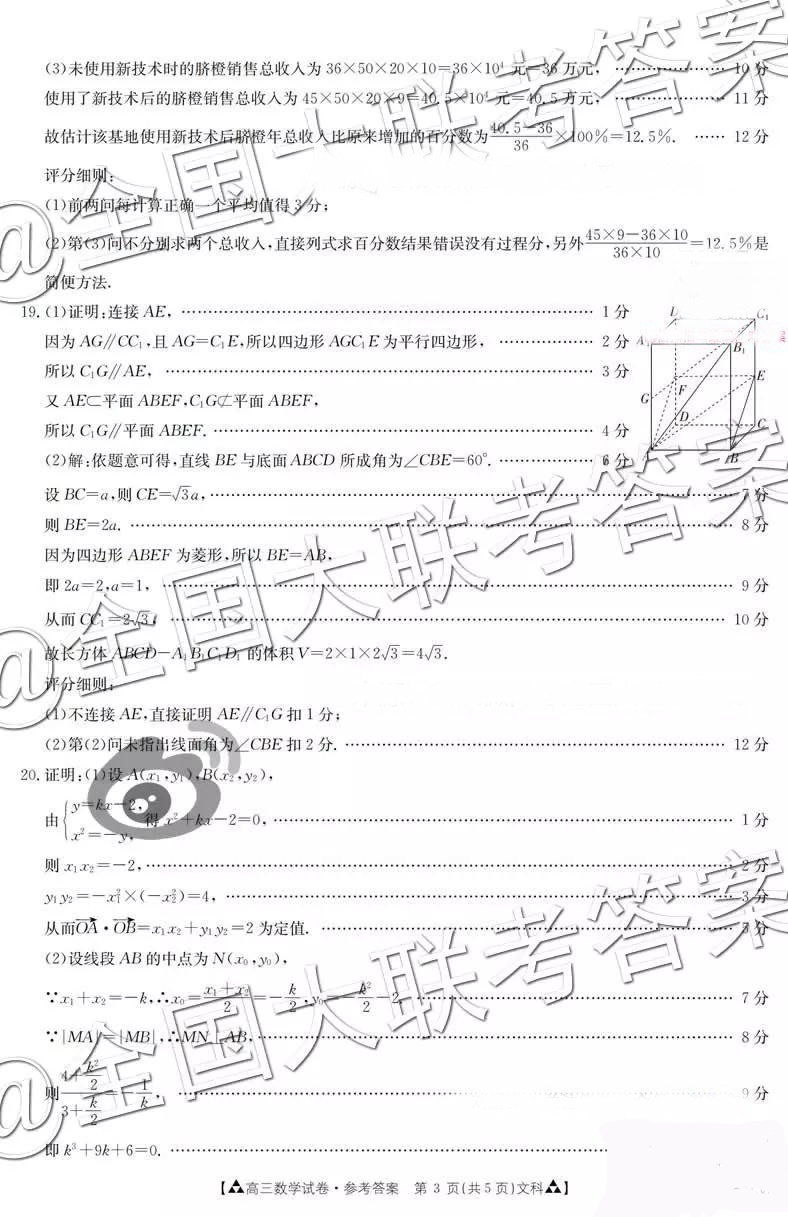 (3)未使用新技术时的脐橙销售总收入为36×50×20×10=36×10⁴ 元=36万元, ………… 10分
使用了新技术后的脐橙销售总收入为45×50×20×9=40.5×10⁴元=40.5万元, ………… 11分
故估计该基地使用新技术后脐橙年总收入比原来增加的百分数为(40.5-36)/36×100%=12.5%. …… 12分
评分细则:
(1)前两问每计算正确一个平均值得3分;
(2)第(3)问不分别求两个总收入,直接列式求百分数结果错误没有过程分,另外(45×9-36×10)/(36×10)=12.5%是
简便方法.
19.(1)证明:连接AE, ………… 1分
因为AG∥CC₁,且AG=C₁E,所以四边形AGC₁E为平行四边形, ………… 2分
所以C₁G∥AE, ………… 3分
又AE⊂平面ABEF,C₁G⊄平面ABEF,
所以C₁G∥平面ABEF. ………… 4分
(2)解:依题意可得,直线BE与底面ABCD所成角为∠CBE=60°. ………… 6分
设BC=a,则CE=√3a, ………… 7分
则BE=2a. ………… 8分
因为四边形ABEF为菱形,所以BE=AB,
即2a=2,a=1, ………… 9分
从而CC₁=2√3, ………… 10分
故长方体ABCD-A₁B₁C₁D₁的体积V=2×1×2√3=4√3.
评分细则:
(1)不连接AE,直接证明AE∥C₁G扣1分;
(2)第(2)问未指出线面角为∠CBE扣2分. ………… 12分
20.证明:(1)设A(x₁,y₁),B(x₂,y₂),
由{y=kx-2, x²=-y, 得x²+kx-2=0, ………… 1分
则x₁x₂=-2, ………… 2分
y₁y₂=-x₁²×(-x₂²)=4, ………… 3分
从而OA·OB=x₁x₂+y₁y₂=2为定值. ………… 5分
(2)设线段AB的中点为N(x₀,y₀),
∵x₁+x₂=-k,∴x₀=(x₁+x₂)/2=-k/2,y₀=-k²/2-2, ………… 7分
∵|MA|=|MB|,∴MN⊥AB, ………… 8分
则(4+k²/2)/(3+k/2)=-1/k, ………… 9分
即k³+9k+6=0. …………
C₁
A₁
B₁
F
E
G
D
C
A
B
【高三数学试卷·参考答案 第3页(共5页)文科】
@全国大联考答案
@全国大联考答案
@全国大联考答案